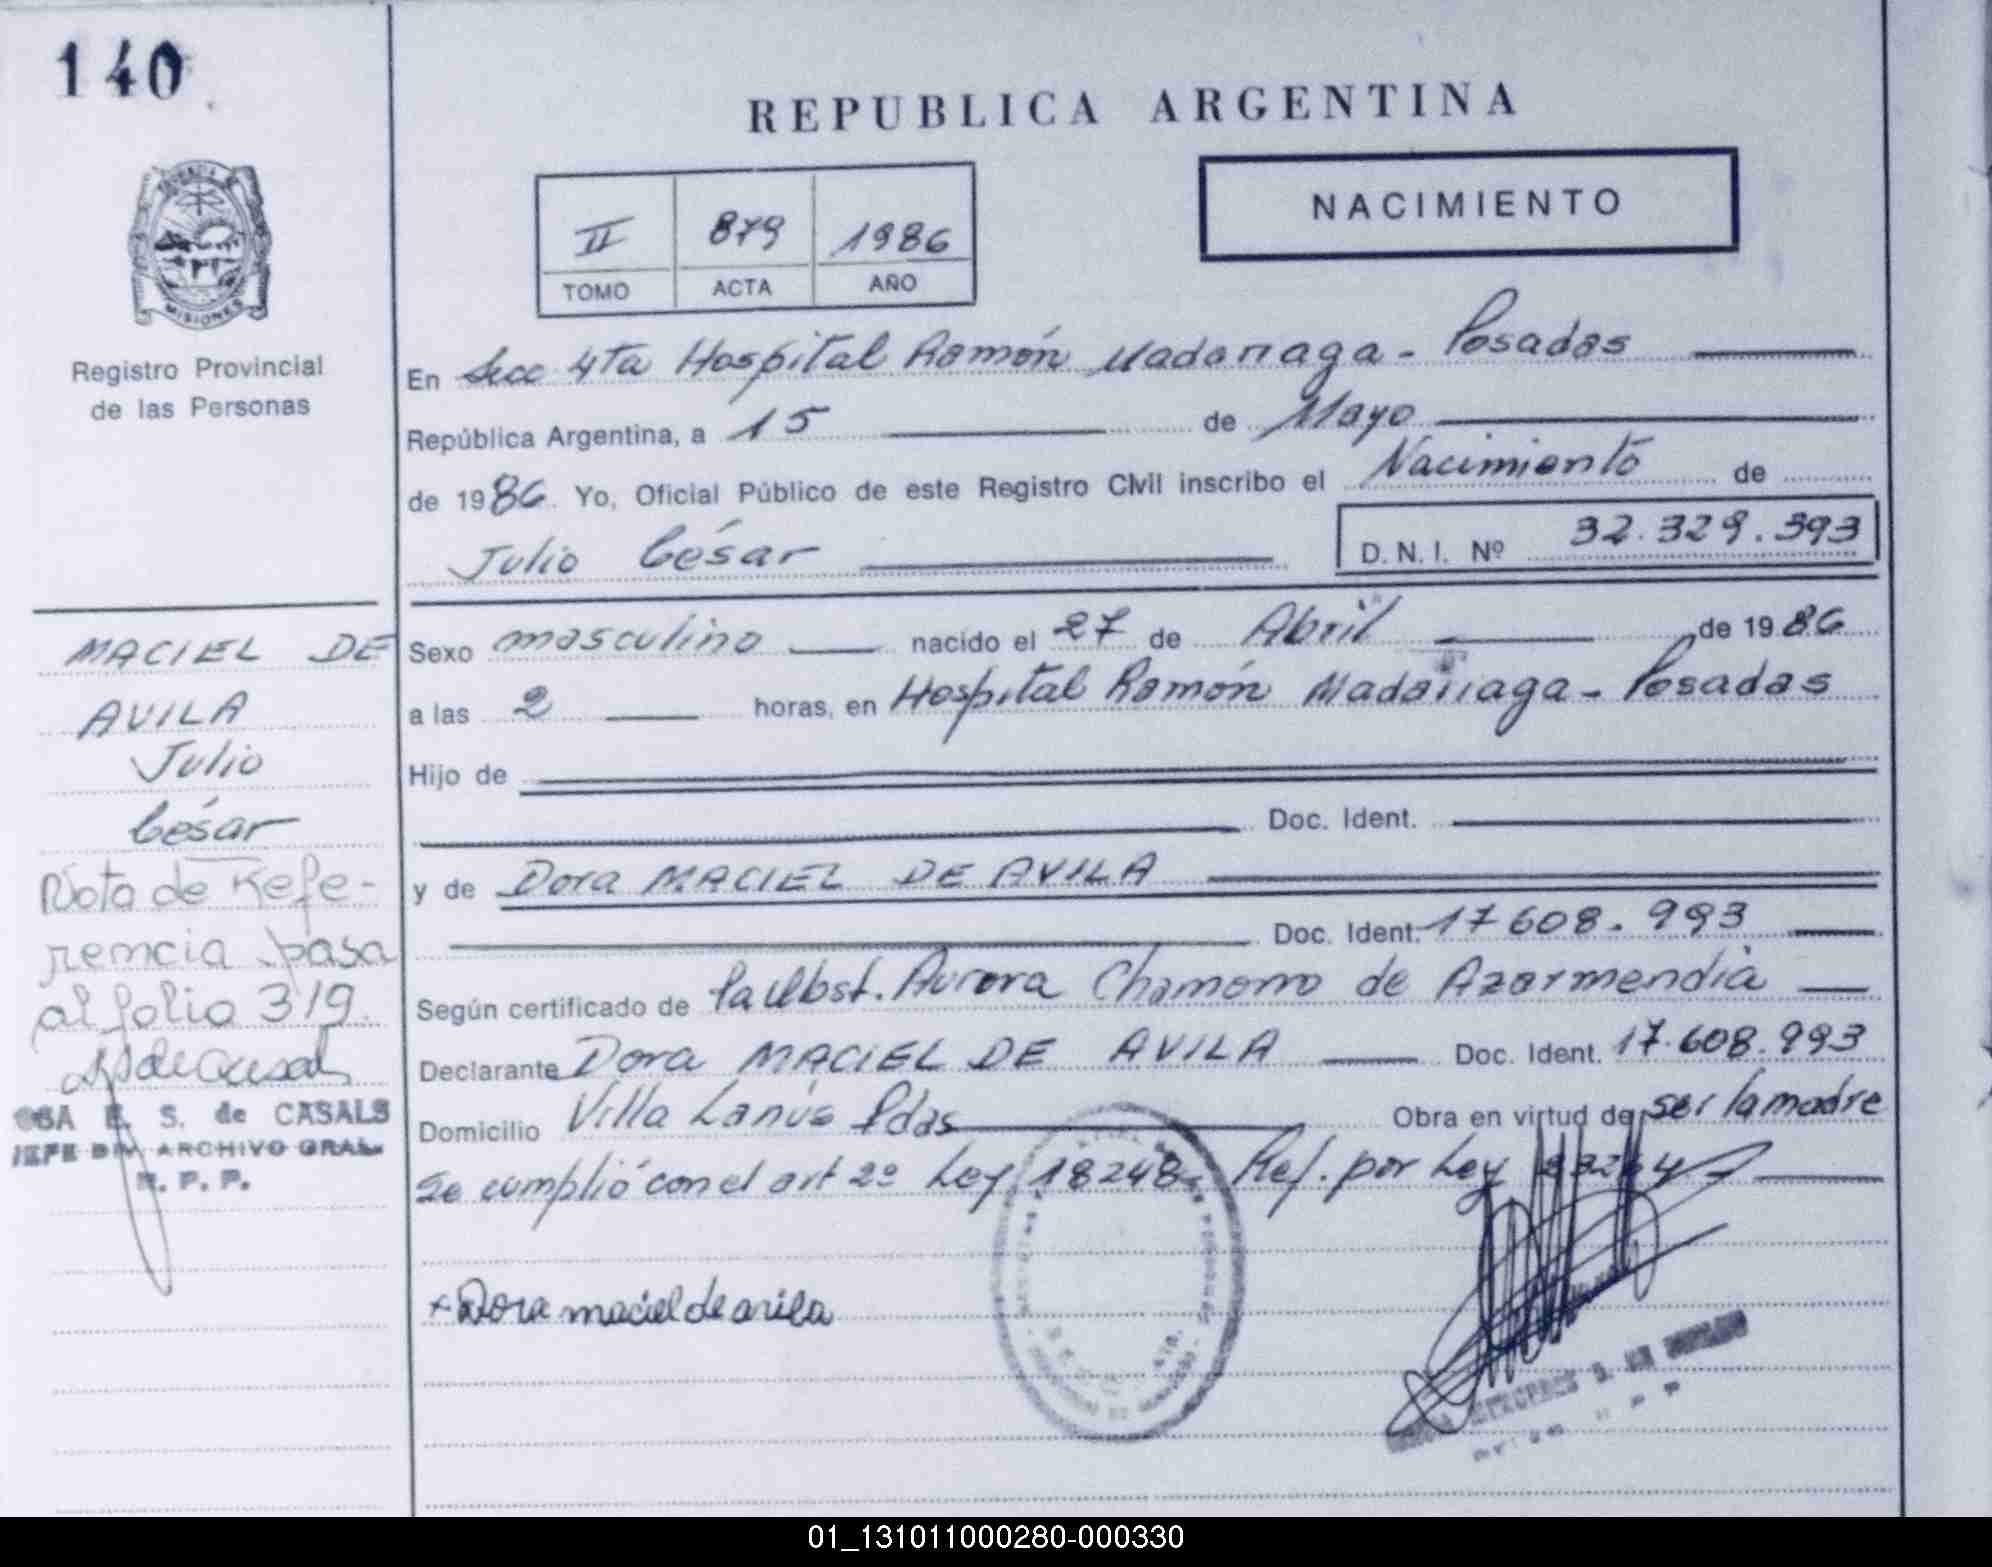 140
REPUBLICA ARGENTINA
NACIMIENTO
II 879 1986
TOMO ACTA AÑO
MISIONES
Registro Provincial
de las Personas
En Secc 4ta Hospital Ramón Madariaga - Posadas
República Argentina, a 15 de Mayo
de 1986. Yo, Oficial Público de este Registro Civil inscribo el Nacimiento de
Julio César D. N. I. Nº 32.329.393
MACIEL DE
AVILA
Julio
César
Nota de Refe-
rencia pasa
al folio 319.
E. S. de CASALS
JEFE DIV. ARCHIVO GRAL.
R. P. P.
Sexo masculino nacido el 27 de Abril de 1986
a las 2 horas, en Hospital Ramón Madariaga - Posadas
Hijo de
Doc. Ident.
y de Dora MACIEL DE AVILA
Doc. Ident. 17608.993
Según certificado de la Obst. Aurora Chamorro de Azarmendia
Declarante Dora MACIEL DE AVILA Doc. Ident. 17.608.993
Domicilio Villa Lanús Pdas Obra en virtud de ser la madre
Se cumplió con el art 2º Ley 18248 - Ref. por Ley 23264
+ Dora maciel de avila
01_131011000280-000330